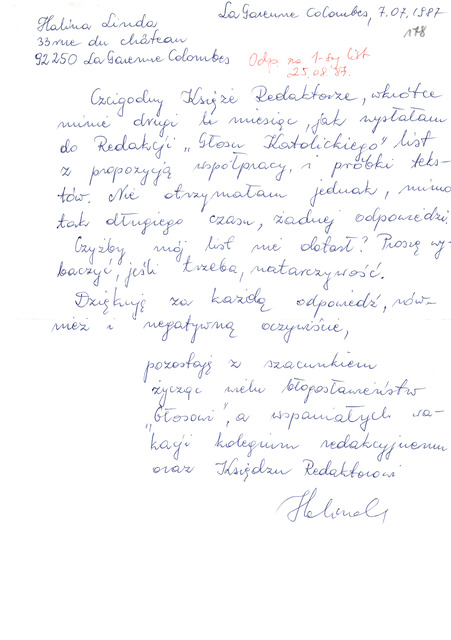 Halina Linda
La Garenne Colombes, 7.07.1987
33 rue du château
178
92250 La Garenne Colombes
Odp. na 1-szy list
25.08.87.
Czcigodny Księże Redaktorze, wkrótce
minie drugi miesiąc, jak wysłałam
do Redakcji „Głosu Katolickiego" list
z propozycją współpracy i próbki teks-
tów. Nie otrzymałam jednak, mimo
tak długiego czasu, żadnej odpowiedzi.
Czyżby mój list nie dotarł? Proszę wy-
baczyć, jeśli trzeba, natarczywość.
Dziękuję za każdą odpowiedź, rów-
nież i negatywną oczywiście,
pozostaję z szacunkiem
życząc wielu błogosławieństw
„Głosowi", a wspaniałych wa-
kacji kolegium redakcyjnemu
oraz Księdzu Redaktorowi